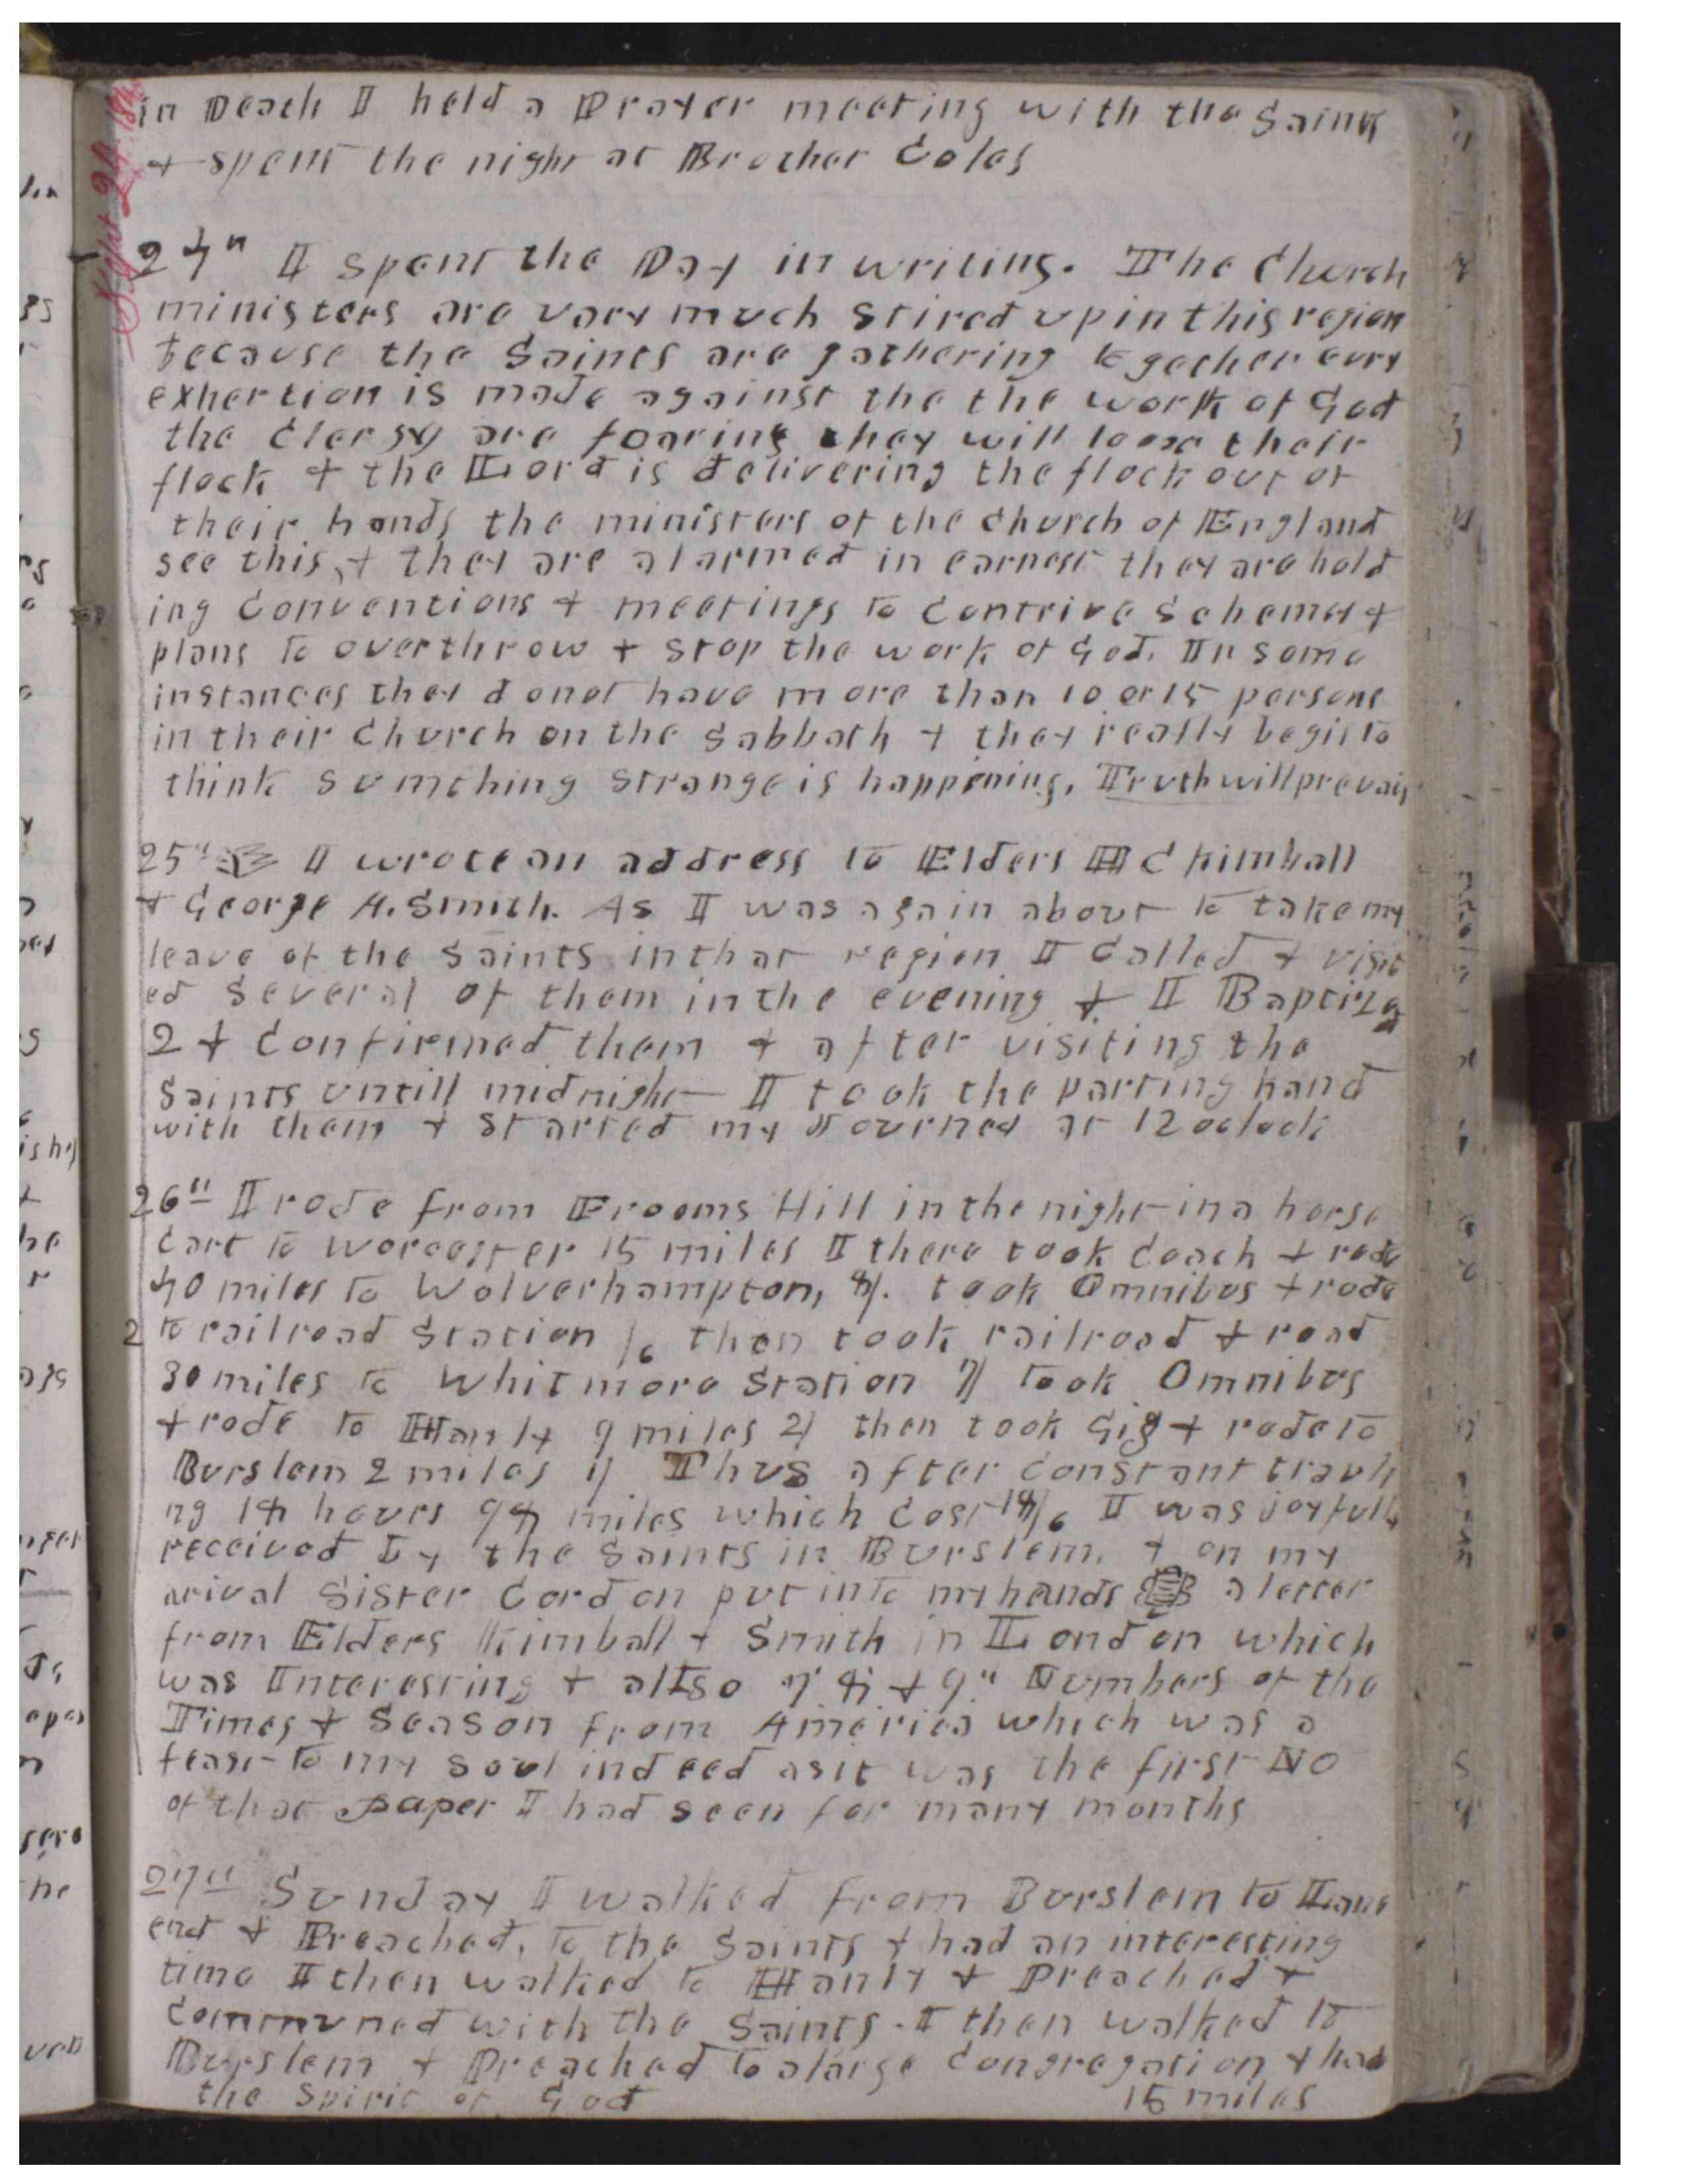 in Death I held a Prayer meeting with the Saints
& spent the night at Brother Coles
Sept 24
24th I spent the Day in writing. The Church
ministers are vary much stired up in this region
because the Saints are gathering together evry
exhertion is made against the the work of God
the Clergy are fearing they will loose their
flock & the Lord is delivering the flock out of
their hands the ministers of the Church of England
see this, & they are alarmed in earnest they are hold
ing Conventions & meetings to Contrive Schemes &
plans to overthrow & stop the work of God. In some
instances they do not have more than 10 or 15 persons
in their Church on the Sabbath & they really begin to
think somthing strange is happening, Truth will prevail
25th I wrote an address to Elders H C Kimball
& George A. Smith. As I was again about to take my
leave of the Saints in that region I Called & visit
ed several of them in the evening & I Baptized
2 & Confirmed them & after visiting the
Saints untill midnight I took the parting hand
with them & started my Journey at 12 oclock
26th I rode from Frooms Hill in the night in a horse
Cart to Worcester 15 miles I there took Coach & rode
40 miles to Wolverhampton, 8/. took Omnibus & rode
2 to railroad Station /6 then took railroad & road
30 miles to Whitmore Station 7/ took Omnibus
& rode to Hanly 9 miles 2/ then took Gig & rode to
Burslem 2 miles 1/ Thus after Constant travli
ng 14 hours 94 miles which Cost 18/6 I was joyfully
received by the Saints in Burslem. & on my
arival Sister Cordon put into my hands a letter
from Elders Kimball & Smith in London which
was Interesting & allso 7 8 & 9th Numbers of the
Times & Season from America which was a
feast to my soul indeed as it was the first No
of that paper I had seen for many months
27th Sunday I walked from Burslem to Lane
end & Preached, to the Saints & had an interesting
time I then walked to Hanly & Preached &
Communed with the Saints. I then walked to
Burslem & Preached to a large Congregation & had
the Spirit of God 15 miles